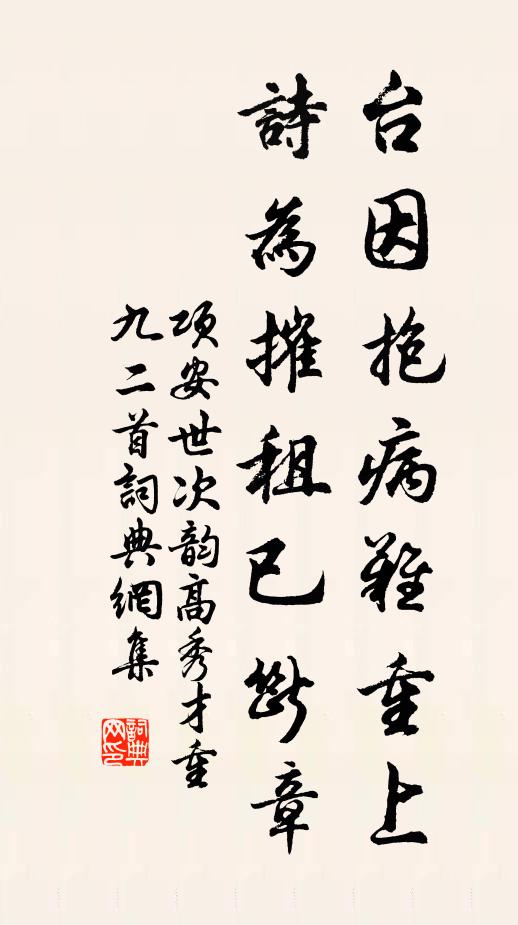 台因抱病難重上
詩為摧租已斷章
項安世次韵高秀才重
九二首詞典網集
詞典网印